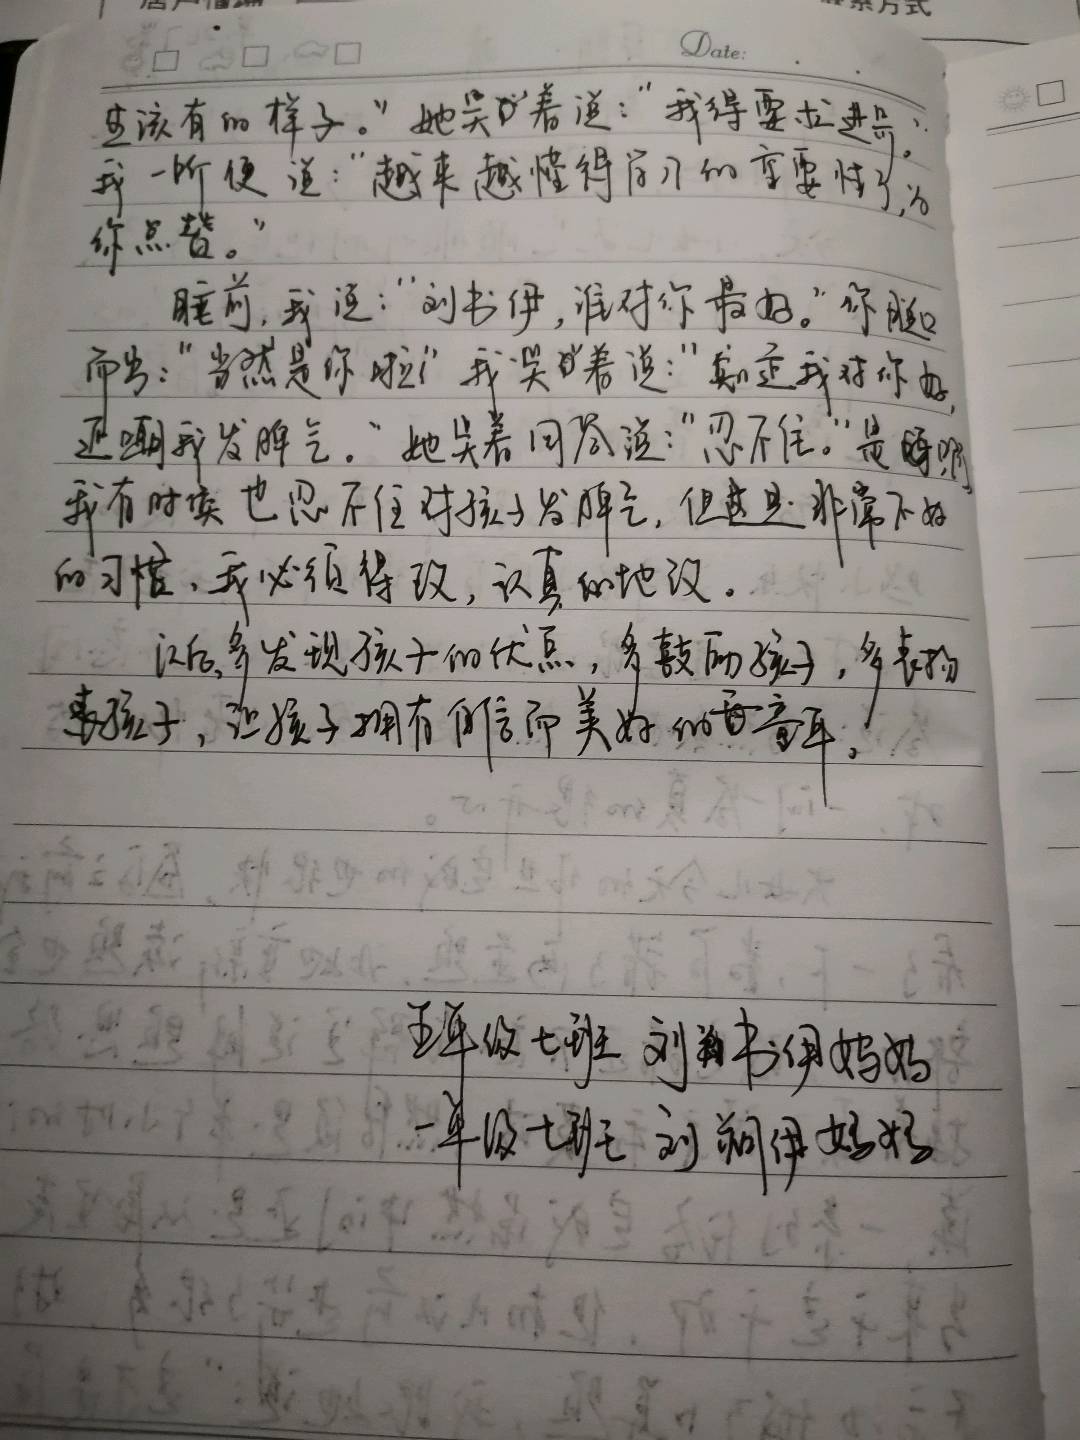 Date:
应该有的样子。”她笑着说:“我得要求进步。”
我一听便说:“越来越懂得学习的重要性了,为
你点赞。”
睡前,我说:“刘书伊,谁对你最好。”你脱口
而出:“当然是你啦!”我笑着说:“知道我对你好,
还嘲我发脾气。”她笑着回答说:“忍不住。”是啊,
我有时候也忍不住对孩子发脾气,但这是非常不好
的习惯,我必须得改,认真的地改。
以后,多发现孩子的优点,多鼓励孩子,多表扬
孩子,让孩子拥有自信而美好的童年。
五年级七班 刘书伊妈妈
一年级七班 刘朔伊妈妈